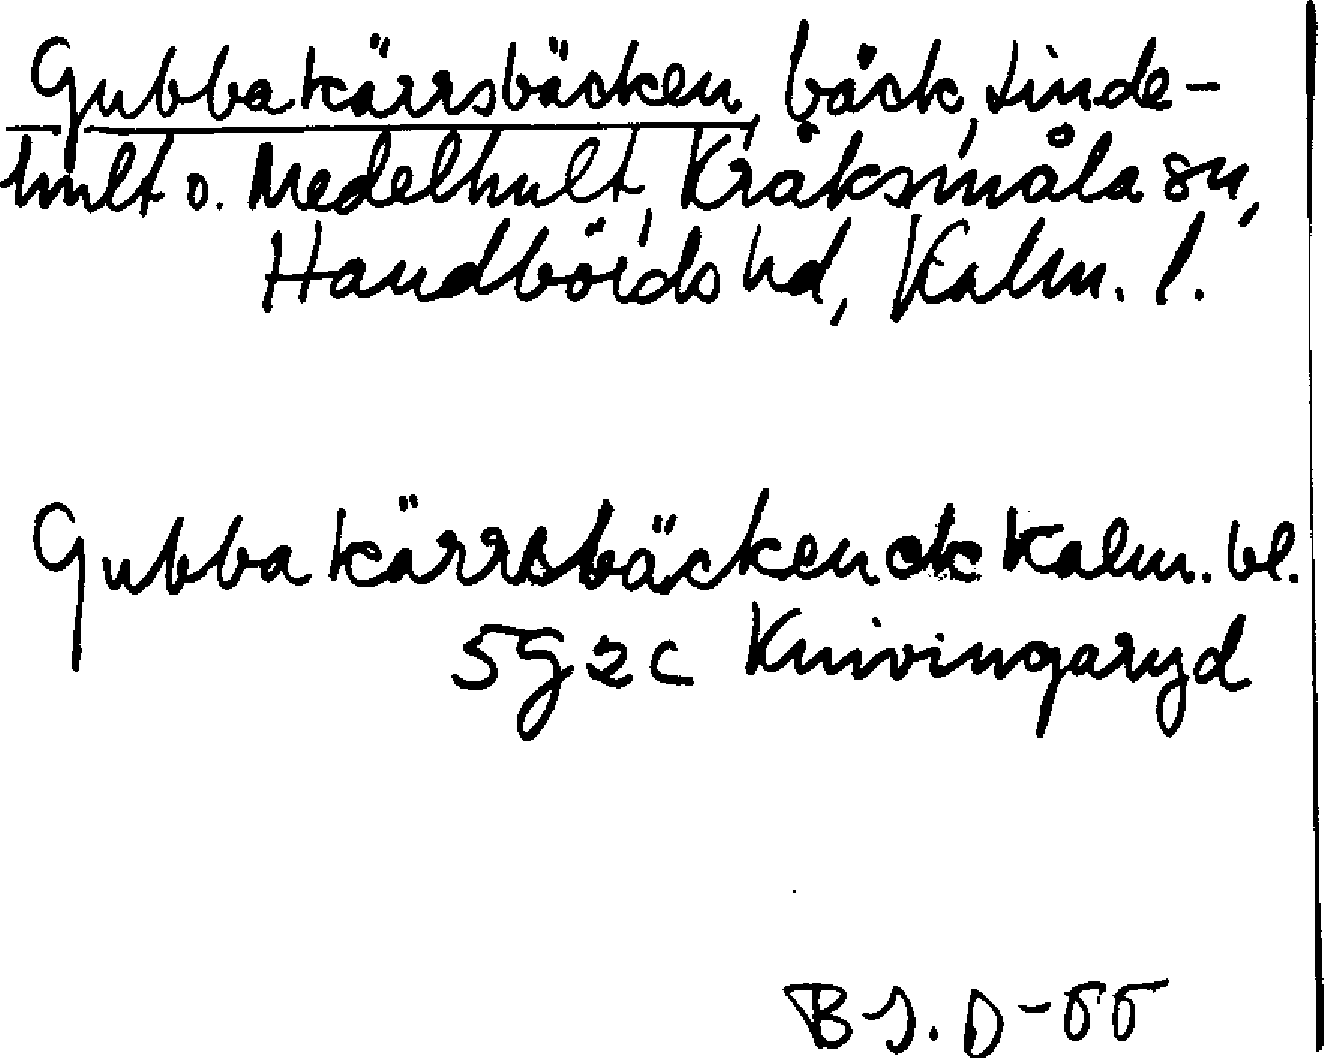 Gubbakärrsbäcken, bäck, Linde-
hult o. Medelhult, Kråksmåla sn,
Handbörds hd, Kalm. l.
Gubbakärrsbäcken ek Kalm. bl.
5G2c Knivingaryd